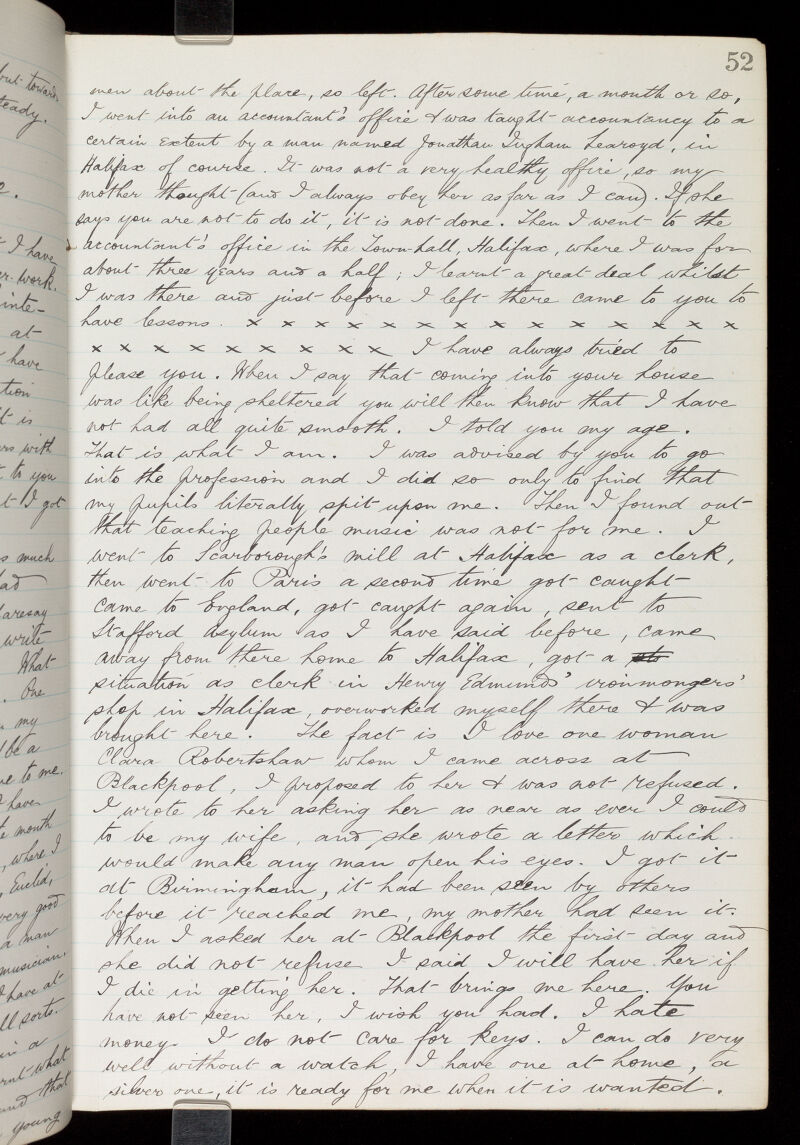 52
men about the place, so left. After some time, a month or so,
I went into an accountant's office & was taught accountancy to a
certain extent by a man named Jonathan Ingham Learoyd, in
Halifax of course. It was not a very healthy office, so my
mother thought (and I always obey her as far as I can). If she
says you are not to do it, it is not done. Then I went to the
accountant's office in the Town-hall, Halifax, where I was for
about three years and a half; I learnt a great deal whilst
I was there and just before I left there came to you to
have lessons. x x x x x x x x x x x x x x x x
x x x x x x x x x x I have always tried to
please you. When I say that coming into your house
was like being sheltered you will then know that I have
not had all quite smooth. I told you my age.
That is what I am. I was advised by you to go
into the profession and I did so only to find that
my pupils literally spit upon me. Then I found out
that teaching people music was not for me. I
went to Scarborough's mill at Halifax as a clerk,
then went to Paris a second time got caught
came to England, got caught again, sent to
Stafford Asylum as I have said before, came
away from there home to Halifax, got a
situation as clerk in Henry Edmunds' ironmongers'
shop in Halifax, overworked myself there & was
brought here. The fact is I love one woman
Clara Robertshaw whom I came across at
Blackpool, I proposed to her & was not refused.
I wrote to her asking her as near as ever I could
to be my wife, and she wrote a letter which
would make any man open his eyes. I got it
at Birmingham, it had been seen by others
before it reached me, my mother had seen it.
When I asked her at Blackpool the first day and
she did not refuse I said I will have her if
I die in getting her. That brings me here. You
have not seen her, I wish you had. I hate
money. I do not care for keys. I can do very
well without a watch, I have one at home, a
silver one, it is ready for me when it is wanted.